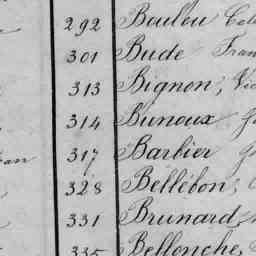 292 Bouleu
301 Bude
313 Bignon,
314 Bunoux
317 Barbier
328 Bellébon,
331 Brunard,
335 Bellenche,